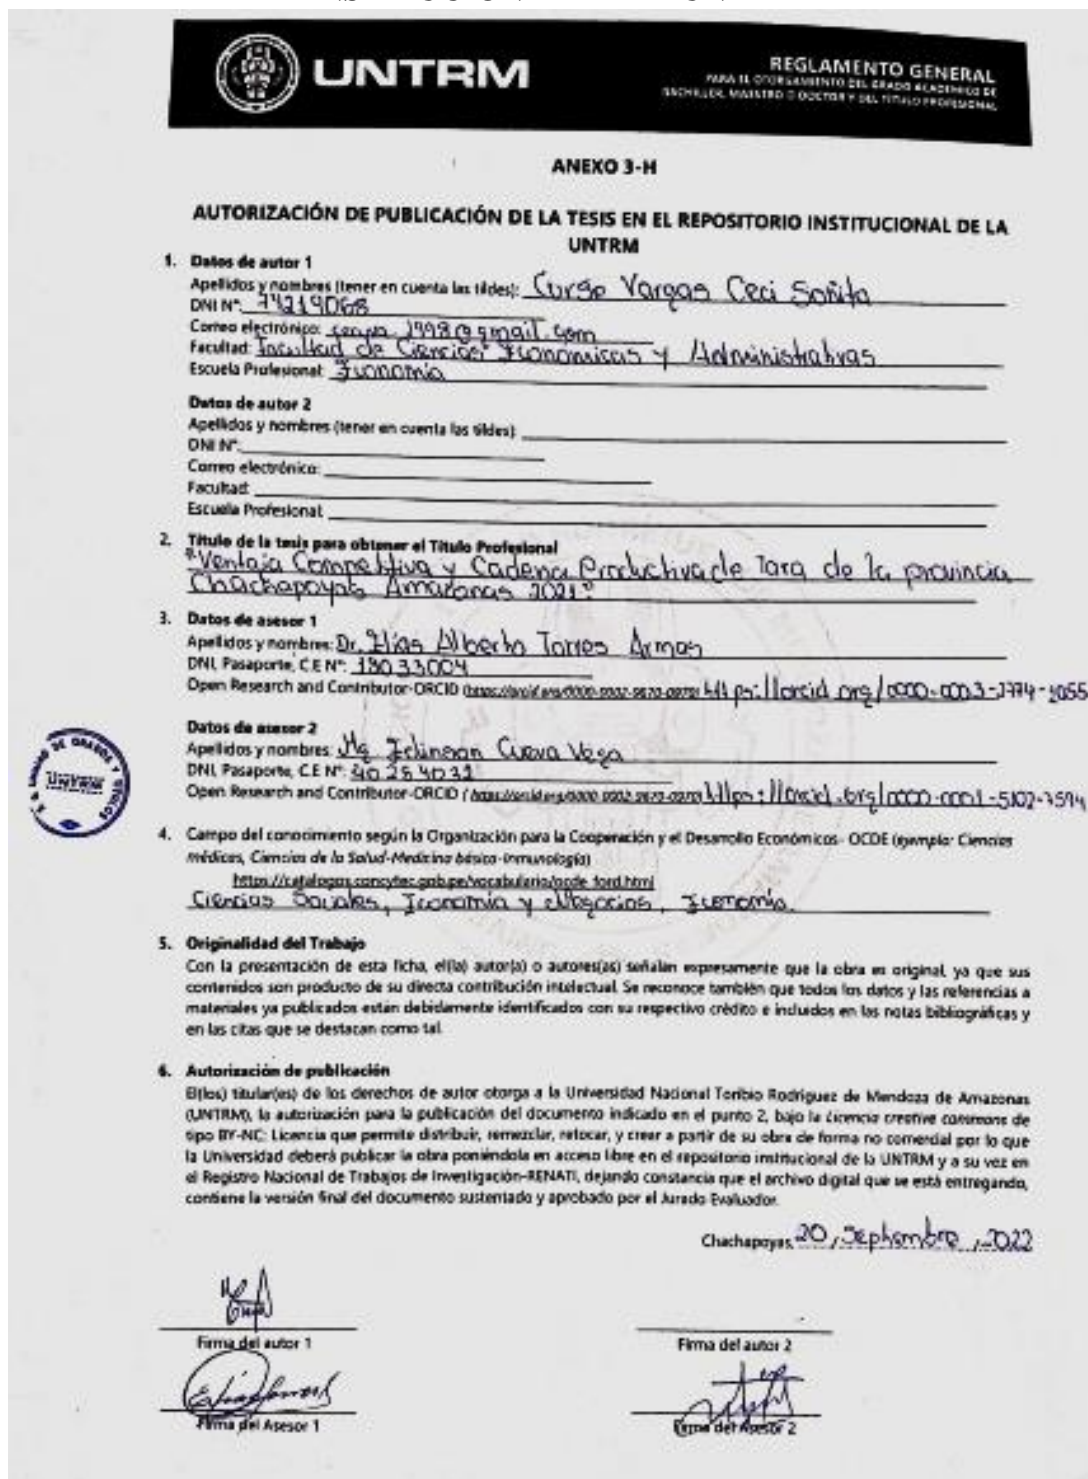 UNTRM
REGLAMENTO GENERAL
PARA EL OTORGAMIENTO DEL GRADO ACADÉMICO DE
BACHILLER, MAESTRO O DOCTOR Y DEL TÍTULO PROFESIONAL
ANEXO 3-H
AUTORIZACIÓN DE PUBLICACIÓN DE LA TESIS EN EL REPOSITORIO INSTITUCIONAL DE LA
UNTRM
1. Datos de autor 1
Apellidos y nombres (tener en cuenta las tildes): Curso Vargas Ceci Soñita
DNI N°: 74219068
Correo electrónico: 1998@gmail.com
Facultad: Facultad de Ciencias Economicas y Administrativas
Escuela Profesional: Economía
Datos de autor 2
Apellidos y nombres (tener en cuenta las tildes):
DNI N°:
Correo electrónico:
Facultad:
Escuela Profesional:
2. Título de la tesis para obtener el Título Profesional
"Ventaja Competitiva y Cadena Productiva de Tara de la provincia
Chachapoyas Amazonas 2021"
3. Datos de asesor 1
Apellidos y nombres: Dr. Elías Alberto Torres Armas
DNI, Pasaporte, C.E N°: 18033004
Open Research and Contributor-ORCID (https://orcid.org/0000-0002-9670-0970) https://orcid.org/0000-0003-1774-1055
Datos de asesor 2
Apellidos y nombres: Mg. Edinson Cueva Vega
DNI, Pasaporte, C.E N°: 40254032
Open Research and Contributor-ORCID (https://orcid.org/0000-0002-9670-0970) https://orcid.org/0000-0001-5107-7594
UNTRM
4. Campo del conocimiento según la Organización para la Cooperación y el Desarrollo Económicos- OCDE (ejemplo: Ciencias
médicas, Ciencias de la Salud-Medicina básica-Inmunología)
https://catalogos.concytec.gob.pe/vocabulario/ocde_ford.html
Ciencias Sociales, Economía y Negocios, Economía
5. Originalidad del Trabajo
Con la presentación de esta ficha, el(la) autor(a) o autores(as) señalan expresamente que la obra es original, ya que sus
contenidos son producto de su directa contribución intelectual. Se reconoce también que todos los datos y las referencias a
materiales ya publicados están debidamente identificados con su respectivo crédito e incluidos en las notas bibliográficas y
en las citas que se destacan como tal.
6. Autorización de publicación
El(los) titular(es) de los derechos de autor otorga a la Universidad Nacional Toribio Rodríguez de Mendoza de Amazonas
(UNTRM), la autorización para la publicación del documento indicado en el punto 2, bajo la Licencia creative commons de
tipo BY-NC: Licencia que permite distribuir, remezclar, retocar, y crear a partir de su obra de forma no comercial por lo que
la Universidad deberá publicar la obra poniéndola en acceso libre en el repositorio institucional de la UNTRM y a su vez en
el Registro Nacional de Trabajos de Investigación-RENATI, dejando constancia que el archivo digital que se está entregando,
contiene la versión final del documento sustentado y aprobado por el Jurado Evaluador.
Chachapoyas, 20, Septiembre, 2022
Firma del autor 1
Firma del autor 2
Firma del Asesor 1
Firma del Asesor 2